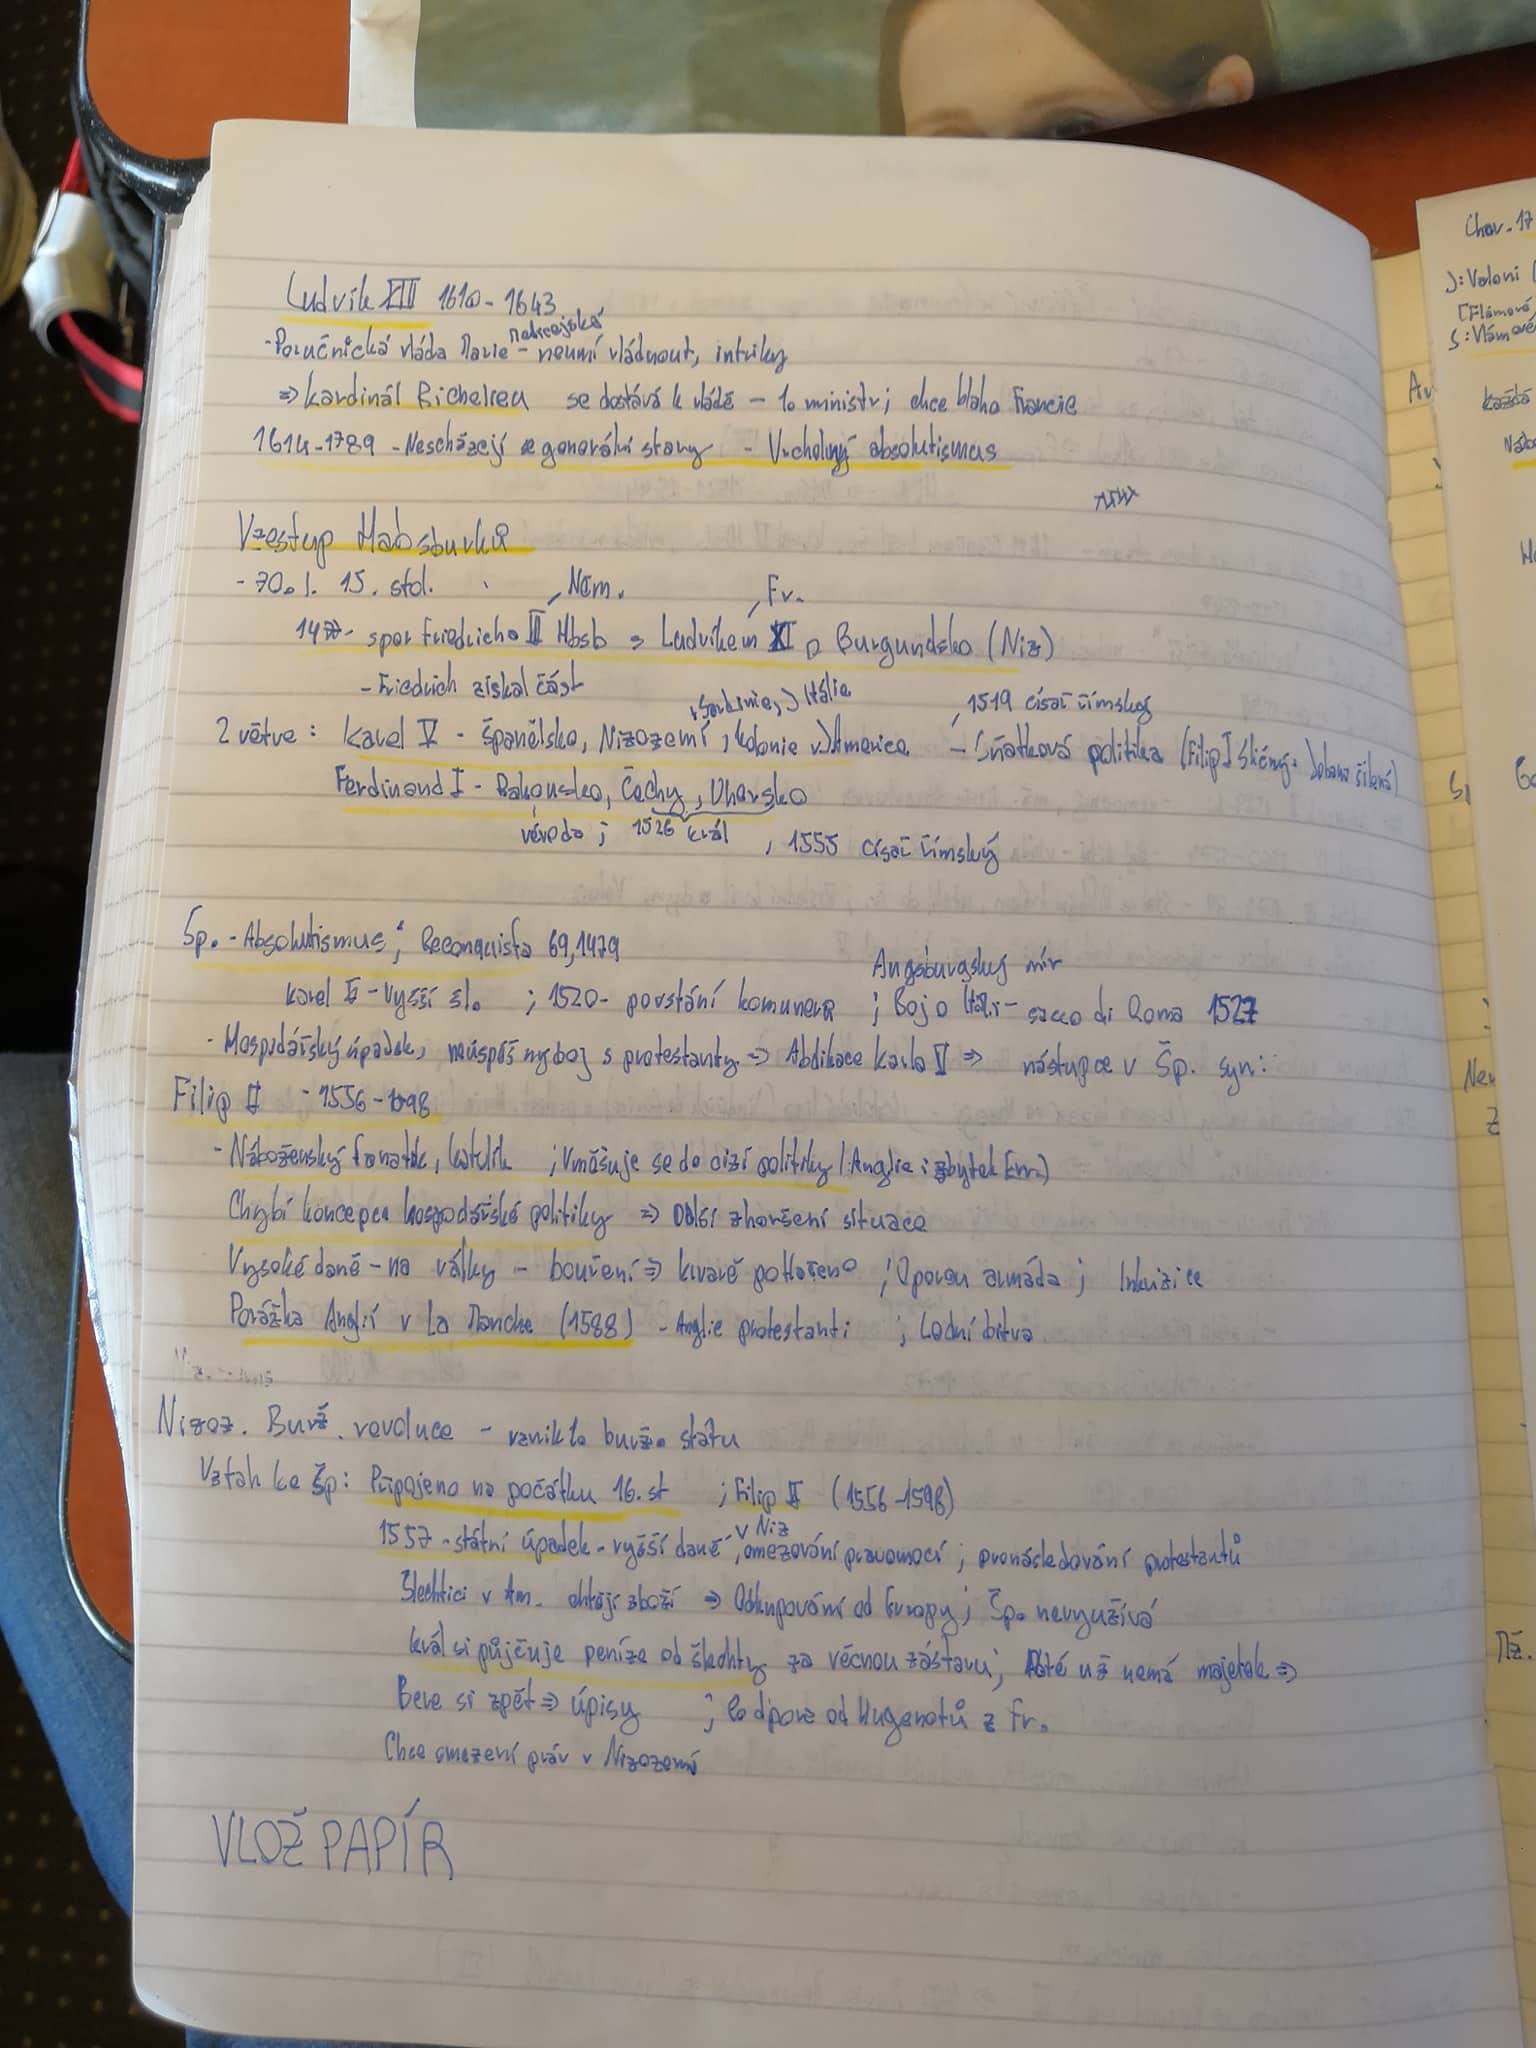 Ludvík XIII 1610 - 1643
Medicejská
- Poručnická vláda Marie - neumí vládnout, intriky
=> kardinál Richelieu se dostává k vládě - 1. ministr; chce blaho Francie
1614-1789 - Neschází se generální stavy - Vrcholný absolutismus
Vzestup Habsburků
- 70. l. 15. stol.
, Něm. , Fr.
1477 - spor Friedricha III Hbsb s Ludvíkem XI o Burgundsko (Niz)
- Friedrich získal část
, Sardinie, J Itálie , 1519 císař římskej
2 větve: Karel V - Španělsko, Nizozemí, kolonie v Americe - Sňatková politika (Filip I Sličný + Johana šílená)
Ferdinand I - Rakousko, Čechy, Uhersko
vévoda; 1526 král , 1555 císař římský
Šp. - Absolutismus; Reconquista 69,1479
Augsburgský mír
Karel - vyšší šl. ; 1520 - povstání komuneros ; Boj o Itál. - sacco di Roma 1527
- Hospodářský úpadek, neúspěšný boj s protestanty => Abdikace Karla V => nástupce v Šp. syn:
Filip II - 1556 - 1598
- Náboženský fanatik, katolík ; Vměšuje se do cizí politiky (Anglie i zbytek Evr.)
Chybí koncepce hospodářské politiky => Další zhoršení situace
Vysoké daně - na války - bouření => krvavě potlačeno ; Oporou armáda ; Inkvizice
Porážka Anglií v La Manche (1588) - Anglie protestanti ; Lodní bitva
Nizoz. Burž. revoluce - vznik 1. burž. státu
Vztah ke Šp: Připojeno na počátku 16. st ; Filip II (1556 - 1598)
v Niz
1557 - státní úpadek - vyšší daně, omezování pravomocí ; pronásledování protestantů
Šlechtici v Am. chtějí zboží => Odkupování od Evropy ; Šp. nevyužívá
král si půjčuje peníze od šlechty za věcnou zástavu ; Poté už nemá majetek =>
Bere si zpět => úpisy ; Podpora od Hugenotů z Fr.
Chce omezení práv v Nizozemí
VLOŽ PAPÍR
Char. 17
J: Valoni (
S: Vlámové
každá